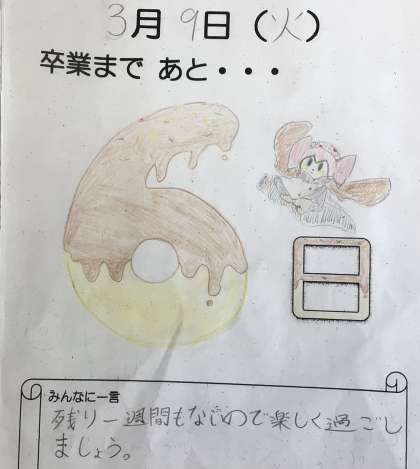 3月9日（火）
卒業まで あと・・・
6日
みんなに一言
残り一週間もないので楽しく過ごし
ましょう。